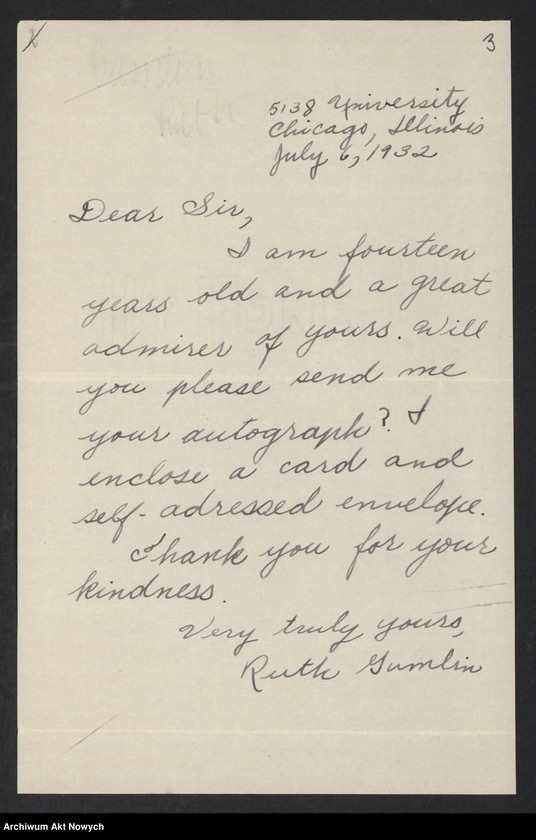 2
3
5138 University
Chicago, Illinois
July 6, 1932
Dear Sir,
I am fourteen
years old and a great
admirer of yours. Will
you please send me
your autograph? I
enclose a card and
self-adressed envelope.
Thank you for your
kindness.
Very truly yours,
Ruth Gumlin
Archiwum Akt Nowych